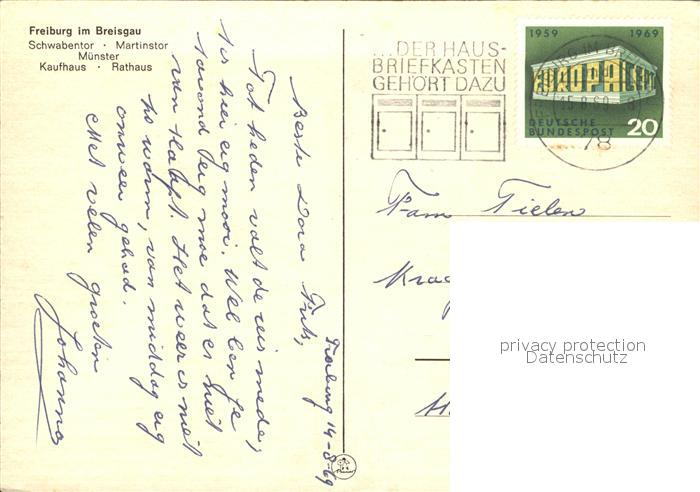 Freiburg im Breisgau
Schwabentor · Martinstor
Münster
Kaufhaus · Rathaus
...DER HAUS-
BRIEFKASTEN
GEHÖRT DAZU
1959 1969
EUROPA CEPT
DEUTSCHE
BUNDESPOST 20
78
Freiburg 14-8-69
Beste Dora Frits,
Tot heden valt de reis mede,
is hier erg mooi. Wel ben je
s'avond erg moe dat er niet
van Het weer is niet
zo warm, van middag erg
onweer gehad.
Met velen groeten
Johanna
Fam Tielen
privacy protection
Datenschutz